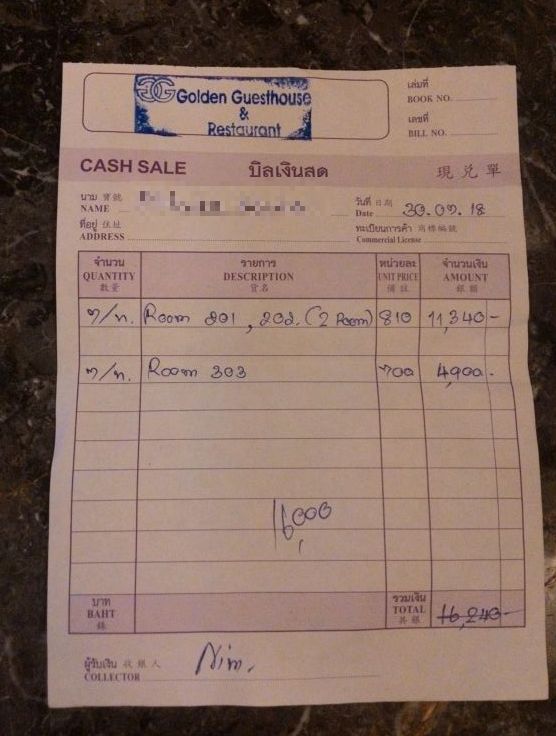 GG Golden Guesthouse
&
Restaurant
เล่มที่
BOOK NO.
เลขที่
BILL NO.
CASH SALE บิลเงินสด 現兌單
นาม 寶號
NAME
วันที่ 日期
Date 30.07.18
ที่อยู่ 住址
ADDRESS
ทะเบียนการค้า 商標編號
Commercial License
จำนวน รายการ หน่วยละ จำนวนเงิน
QUANTITY DESCRIPTION UNIT PRICE AMOUNT
數量 貨名 備註 銀額
7/n. Room 201, 202. (2 Room) 810 11,340-
7/n. Room 303 700 4,900.
16,000
บาท รวมเงิน
BAHT TOTAL 16,240-
銖 共銀
ผู้รับเงิน 收銀人 Nim.
COLLECTOR